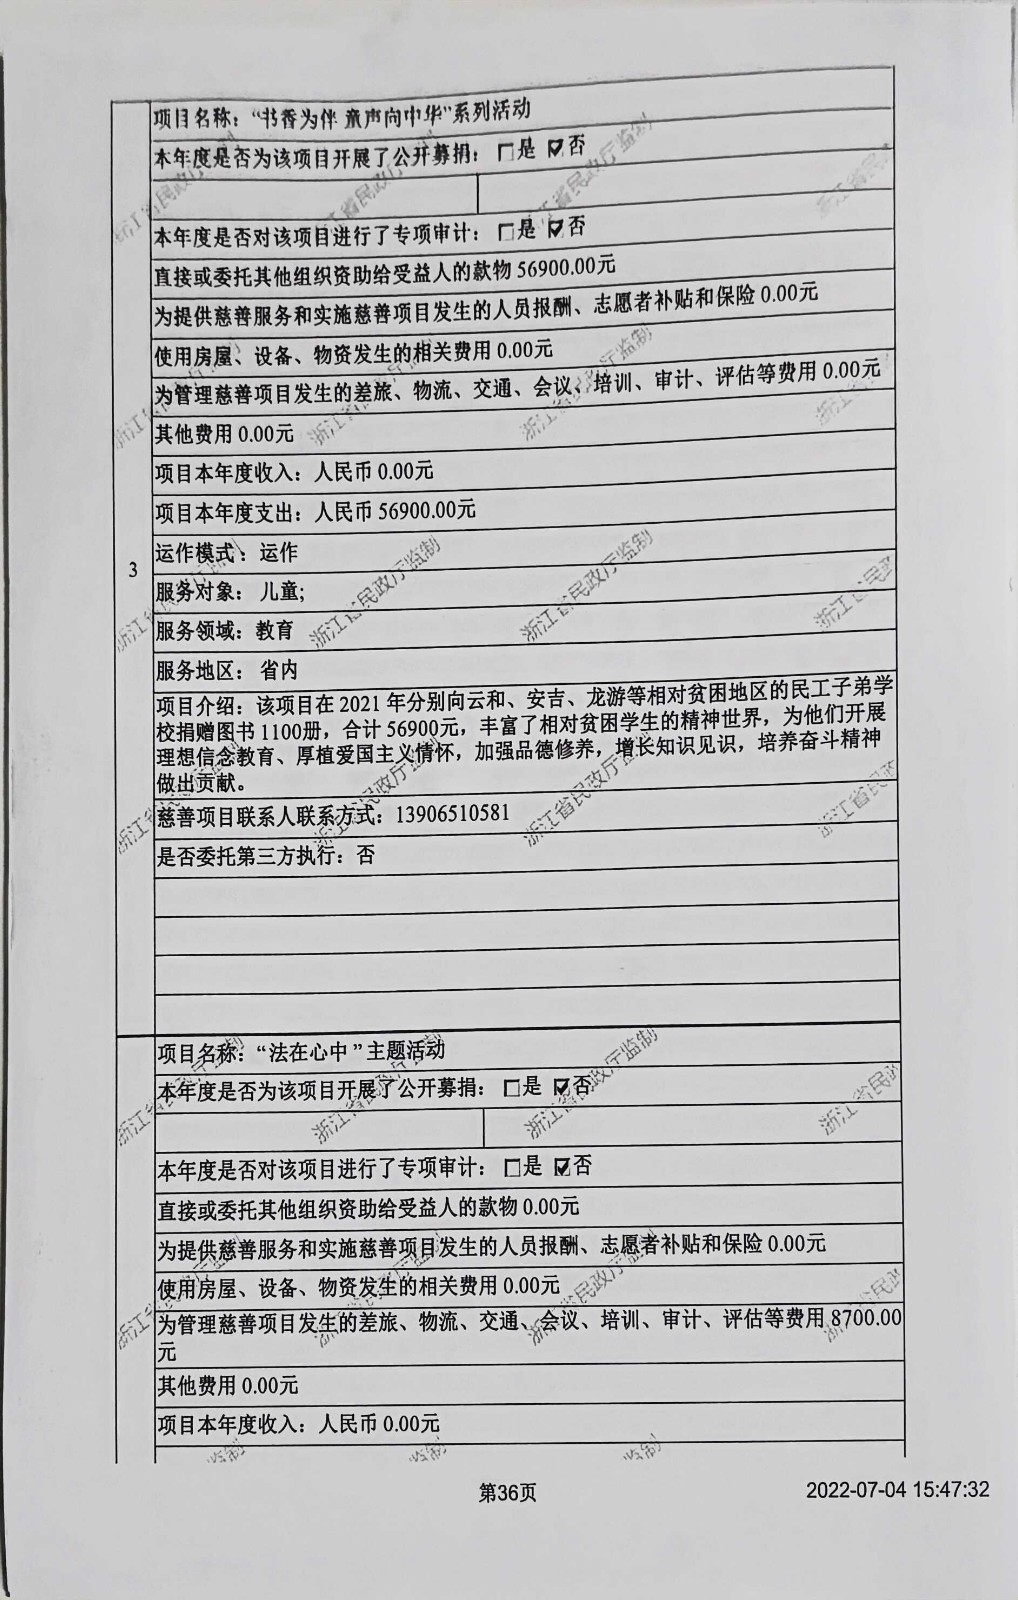 项目名称：“书香为伴 童声向中华”系列活动
本年度是否为该项目开展了公开募捐：□是 ☑否
本年度是否对该项目进行了专项审计：□是 ☑否
直接或委托其他组织资助给受益人的款物 56900.00元
为提供慈善服务和实施慈善项目发生的人员报酬、志愿者补贴和保险 0.00元
使用房屋、设备、物资发生的相关费用 0.00元
为管理慈善项目发生的差旅、物流、交通、会议、培训、审计、评估等费用 0.00元
其他费用 0.00元
项目本年度收入：人民币 0.00元
项目本年度支出：人民币 56900.00元
运作模式：运作
3
服务对象： 儿童;
服务领域：教育
服务地区： 省内
项目介绍：该项目在 2021 年分别向云和、安吉、龙游等相对贫困地区的民工子弟学
校捐赠图书 1100册，合计 56900元，丰富了相对贫困学生的精神世界，为他们开展
理想信念教育、厚植爱国主义情怀，加强品德修养，增长知识见识，培养奋斗精神
做出贡献。
慈善项目联系人联系方式：13906510581
是否委托第三方执行：否
项目名称：“法在心中”主题活动
本年度是否为该项目开展了公开募捐：□是 ☑否
本年度是否对该项目进行了专项审计：□是 ☑否
直接或委托其他组织资助给受益人的款物 0.00元
为提供慈善服务和实施慈善项目发生的人员报酬、志愿者补贴和保险 0.00元
使用房屋、设备、物资发生的相关费用 0.00元
为管理慈善项目发生的差旅、物流、交通、会议、培训、审计、评估等费用 8700.00
元
其他费用 0.00元
项目本年度收入：人民币 0.00元
浙江省民政厅监制
第36页
2022-07-04 15:47:32